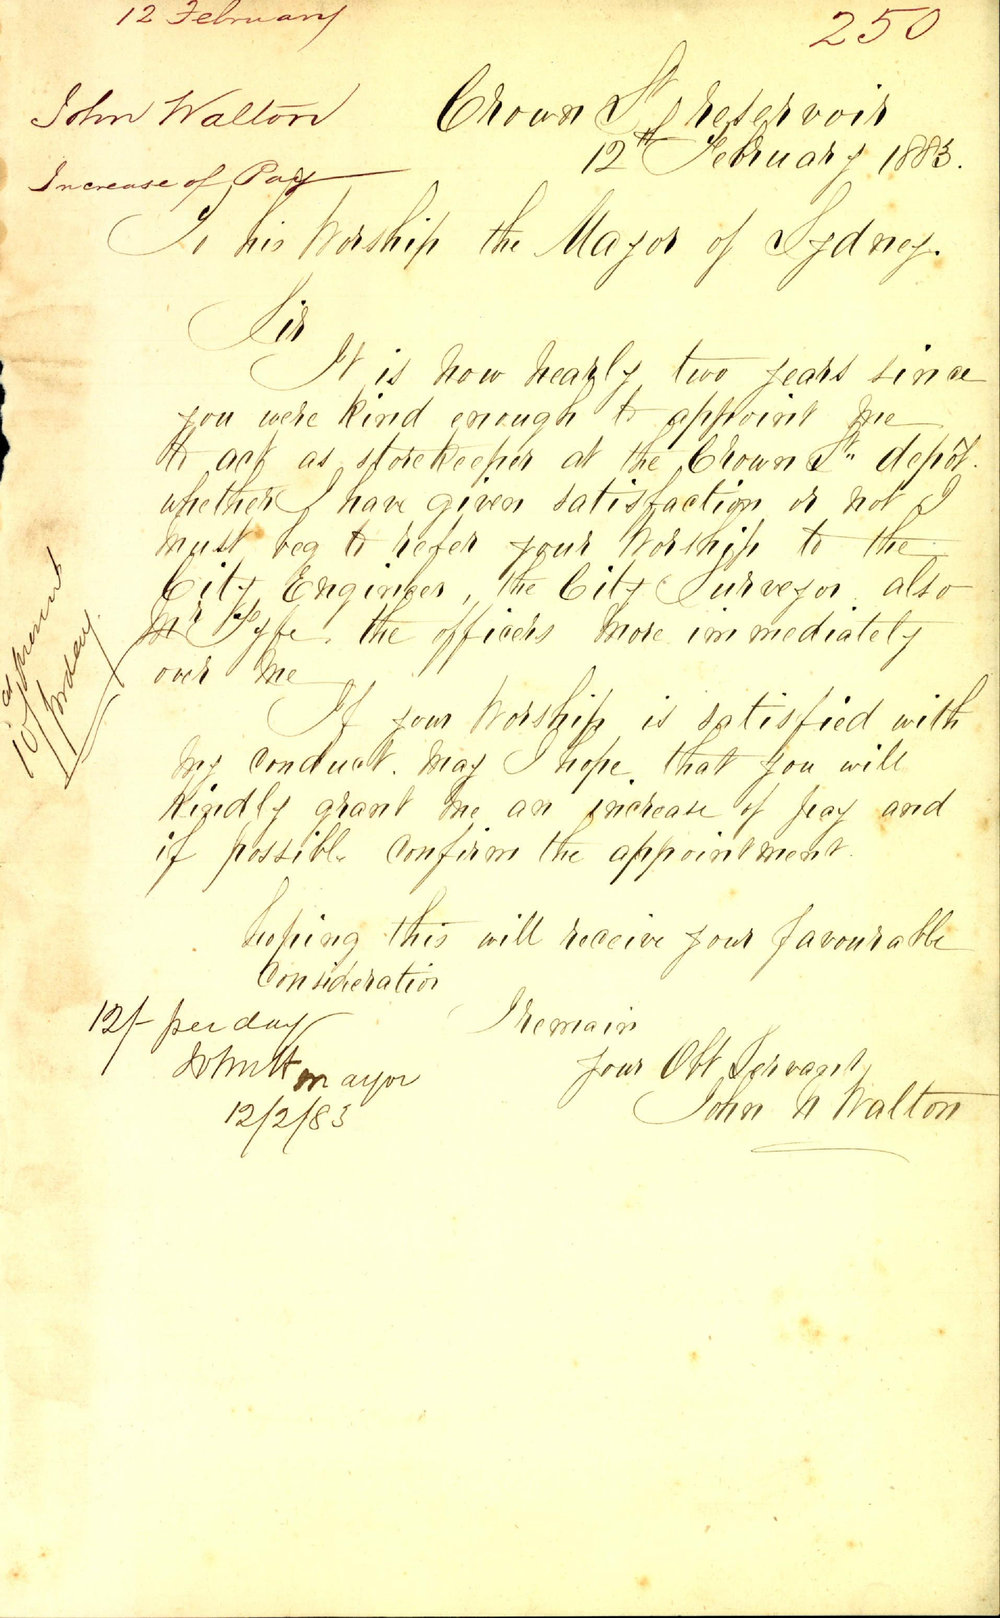 12 February
250
John Walton
Increase of Pay
Crown St reservoir
12th February 1883.
To his Worship the Mayor of Sydney.
Sir
It is now nearly two years since
you were kind enough to appoint me
to act as storekeeper at the Crown St. depôt.
whether I have given satisfaction or not I
must beg to refer your Worship to the
City Engineer, the City Surveyor also
Mr Fyfe. the officers more immediately
over me
If your Worship is satisfied with
my conduct. may I hope that you will
kindly grant me an increase of pay and
if possible confirm the appointment.
hoping this will receive your favourable
Consideration
I remain
your Obt Servant
John N Walton
10/ at present
pr day.
12/- per day
Mayor
12/2/83